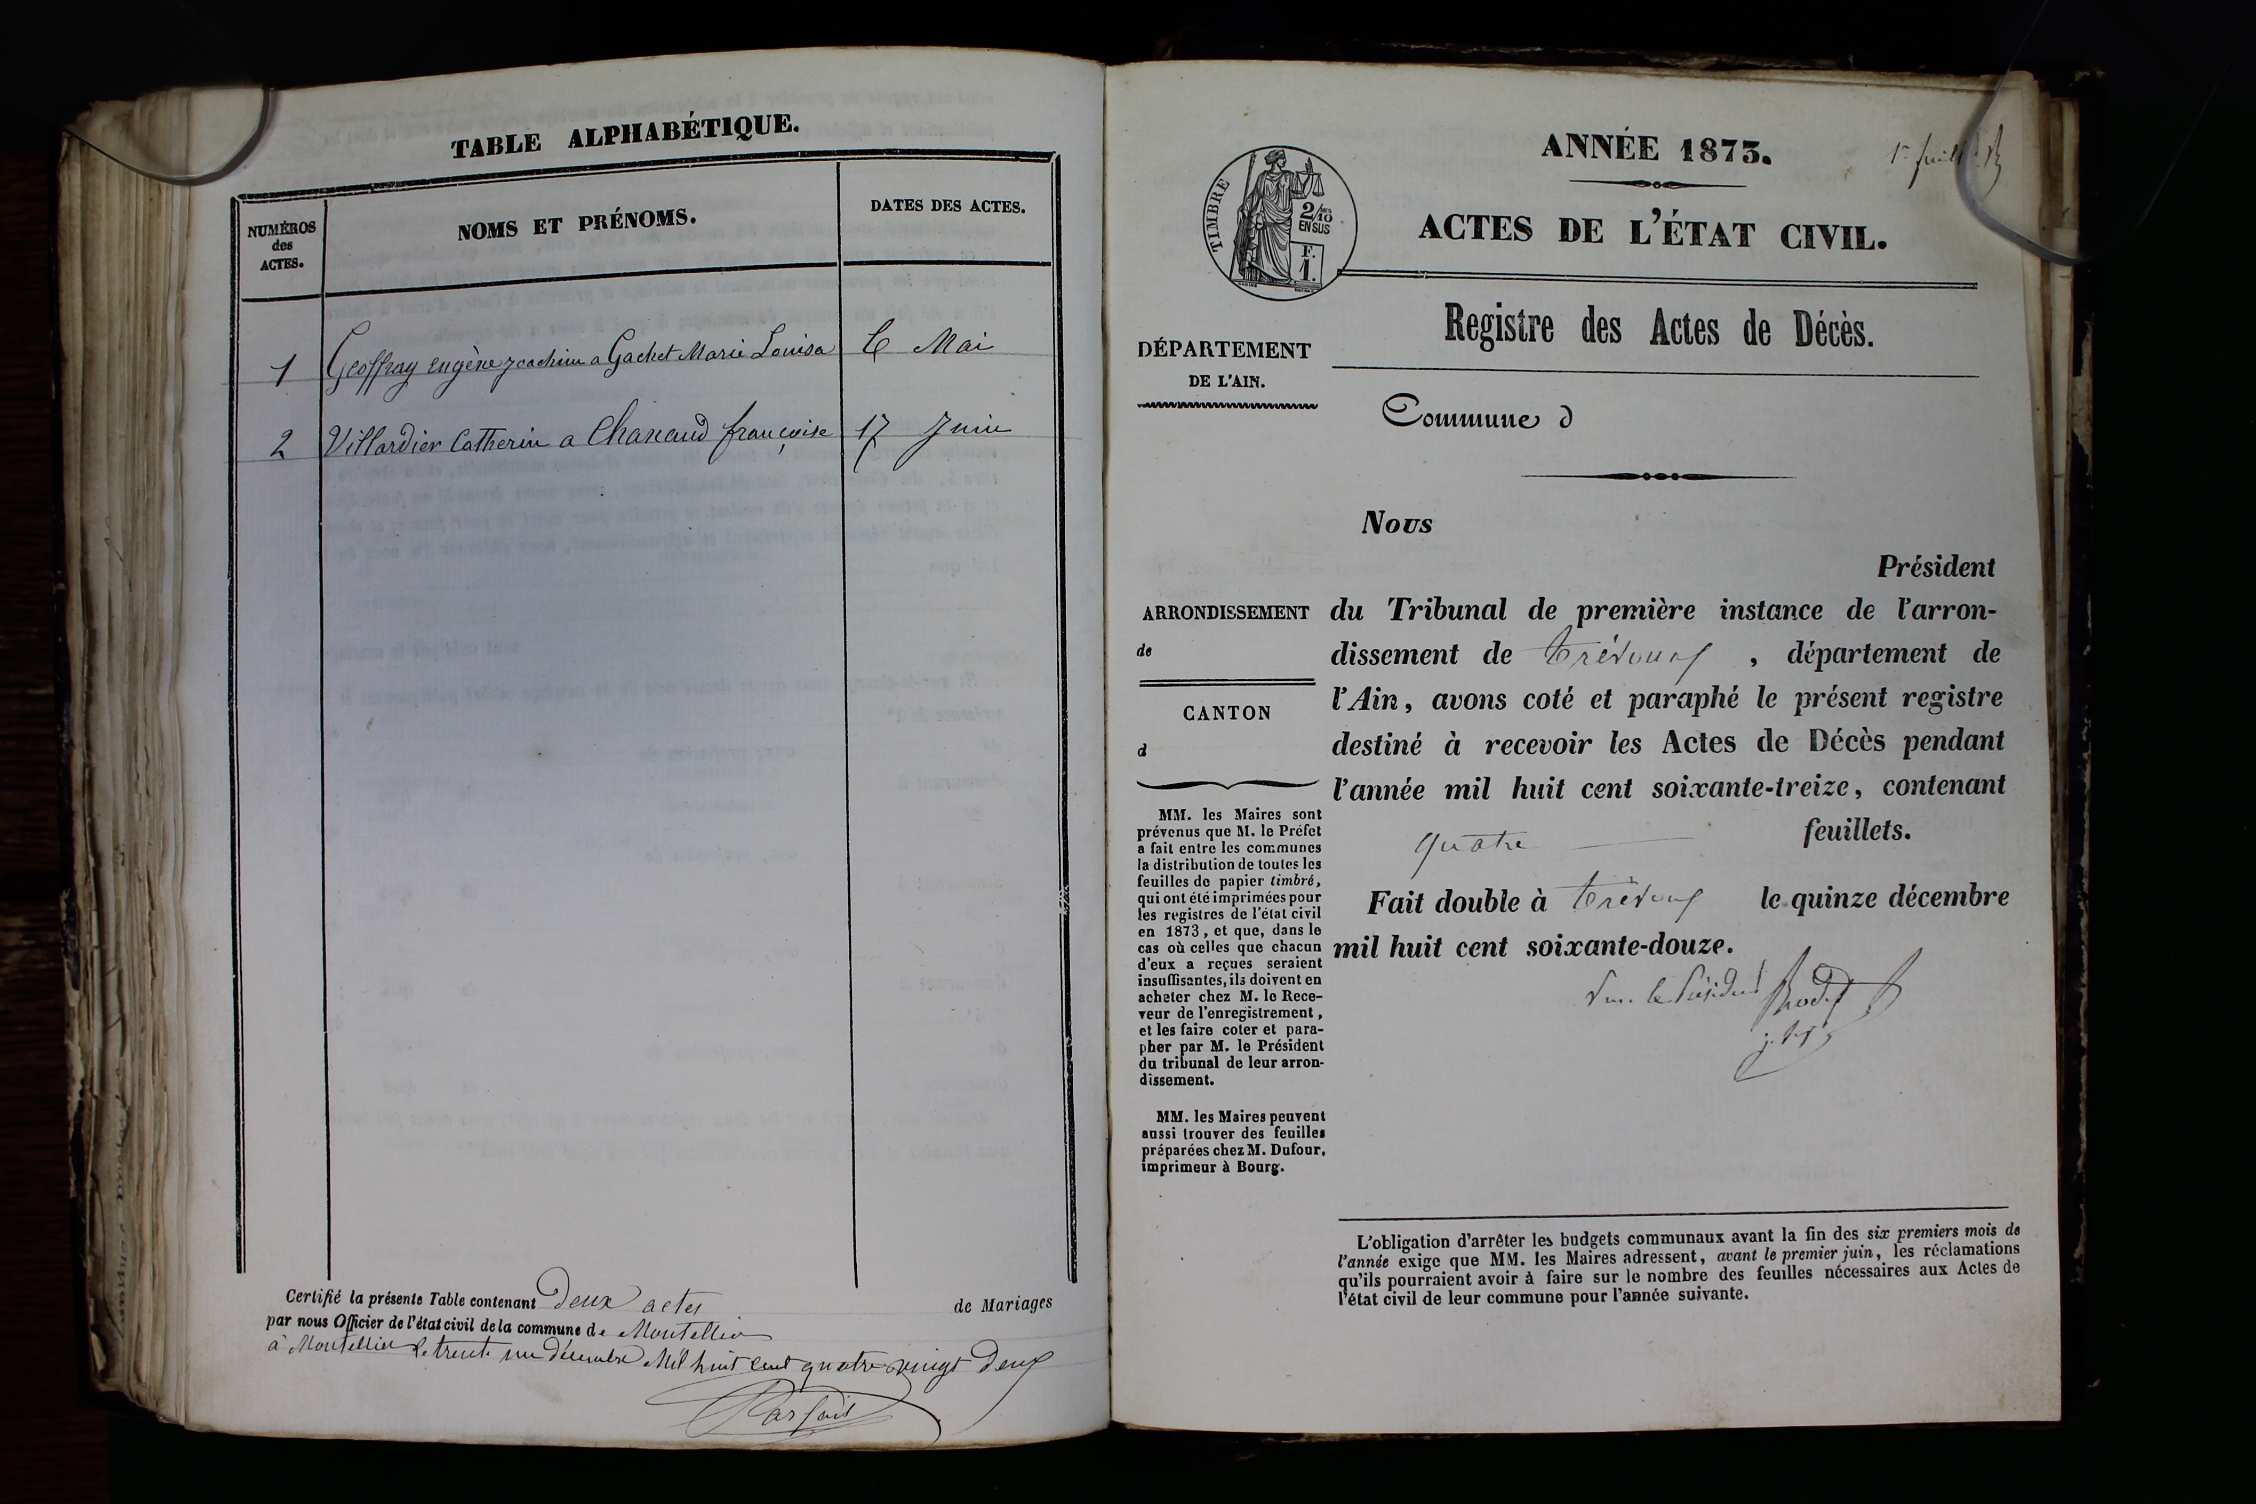 TABLE ALPHABÉTIQUE.
NUMÉROS
des
ACTES.
NOMS ET PRÉNOMS.
DATES DES ACTES.
1 Geoffray eugène joachim a Gachet Marie Louisa 6 Mai
2 Villardier Catherin a Chanaud françoise 17 Juin
Certifié la présente Table contenant Deux actes de Mariages
par nous Officier de l'état civil de la commune de Montellier
à Montellier le trente un décembre Mil huit cent quatre vingt Deux
ANNÉE 1873.
ACTES DE L'ÉTAT CIVIL.
TIMBRE
2/10
EN SUS
F.
1.
Registre des Actes de Décès.
DÉPARTEMENT
DE L'AIN.
Commune d
Nous
Président
ARRONDISSEMENT
de
CANTON
d
du Tribunal de première instance de l'arron-
dissement de trévoux , département de
l'Ain, avons coté et paraphé le présent registre
destiné à recevoir les Actes de Décès pendant
l'année mil huit cent soixante-treize, contenant
quatre feuillets.
Fait double à trévoux le quinze décembre
mil huit cent soixante-douze.
le Président
MM. les Maires sont
prévenus que M. le Préfet
a fait entre les communes
la distribution de toutes les
feuilles de papier timbré,
qui ont été imprimées pour
les registres de l'état civil
en 1873, et que, dans le
cas où celles que chacun
d'eux a reçues seraient
insuffisantes, ils doivent en
acheter chez M. le Rece-
veur de l'enregistrement,
et les faire coter et para-
pher par M. le Président
du tribunal de leur arron-
dissement.
MM. les Maires peuvent
aussi trouver des feuilles
préparées chez M. Dufour,
imprimeur à Bourg.
L'obligation d'arrêter les budgets communaux avant la fin des six premiers mois de
l'année exige que MM. les Maires adressent, avant le premier juin, les réclamations
qu'ils pourraient avoir à faire sur le nombre des feuilles nécessaires aux Actes de
l'état civil de leur commune pour l'année suivante.